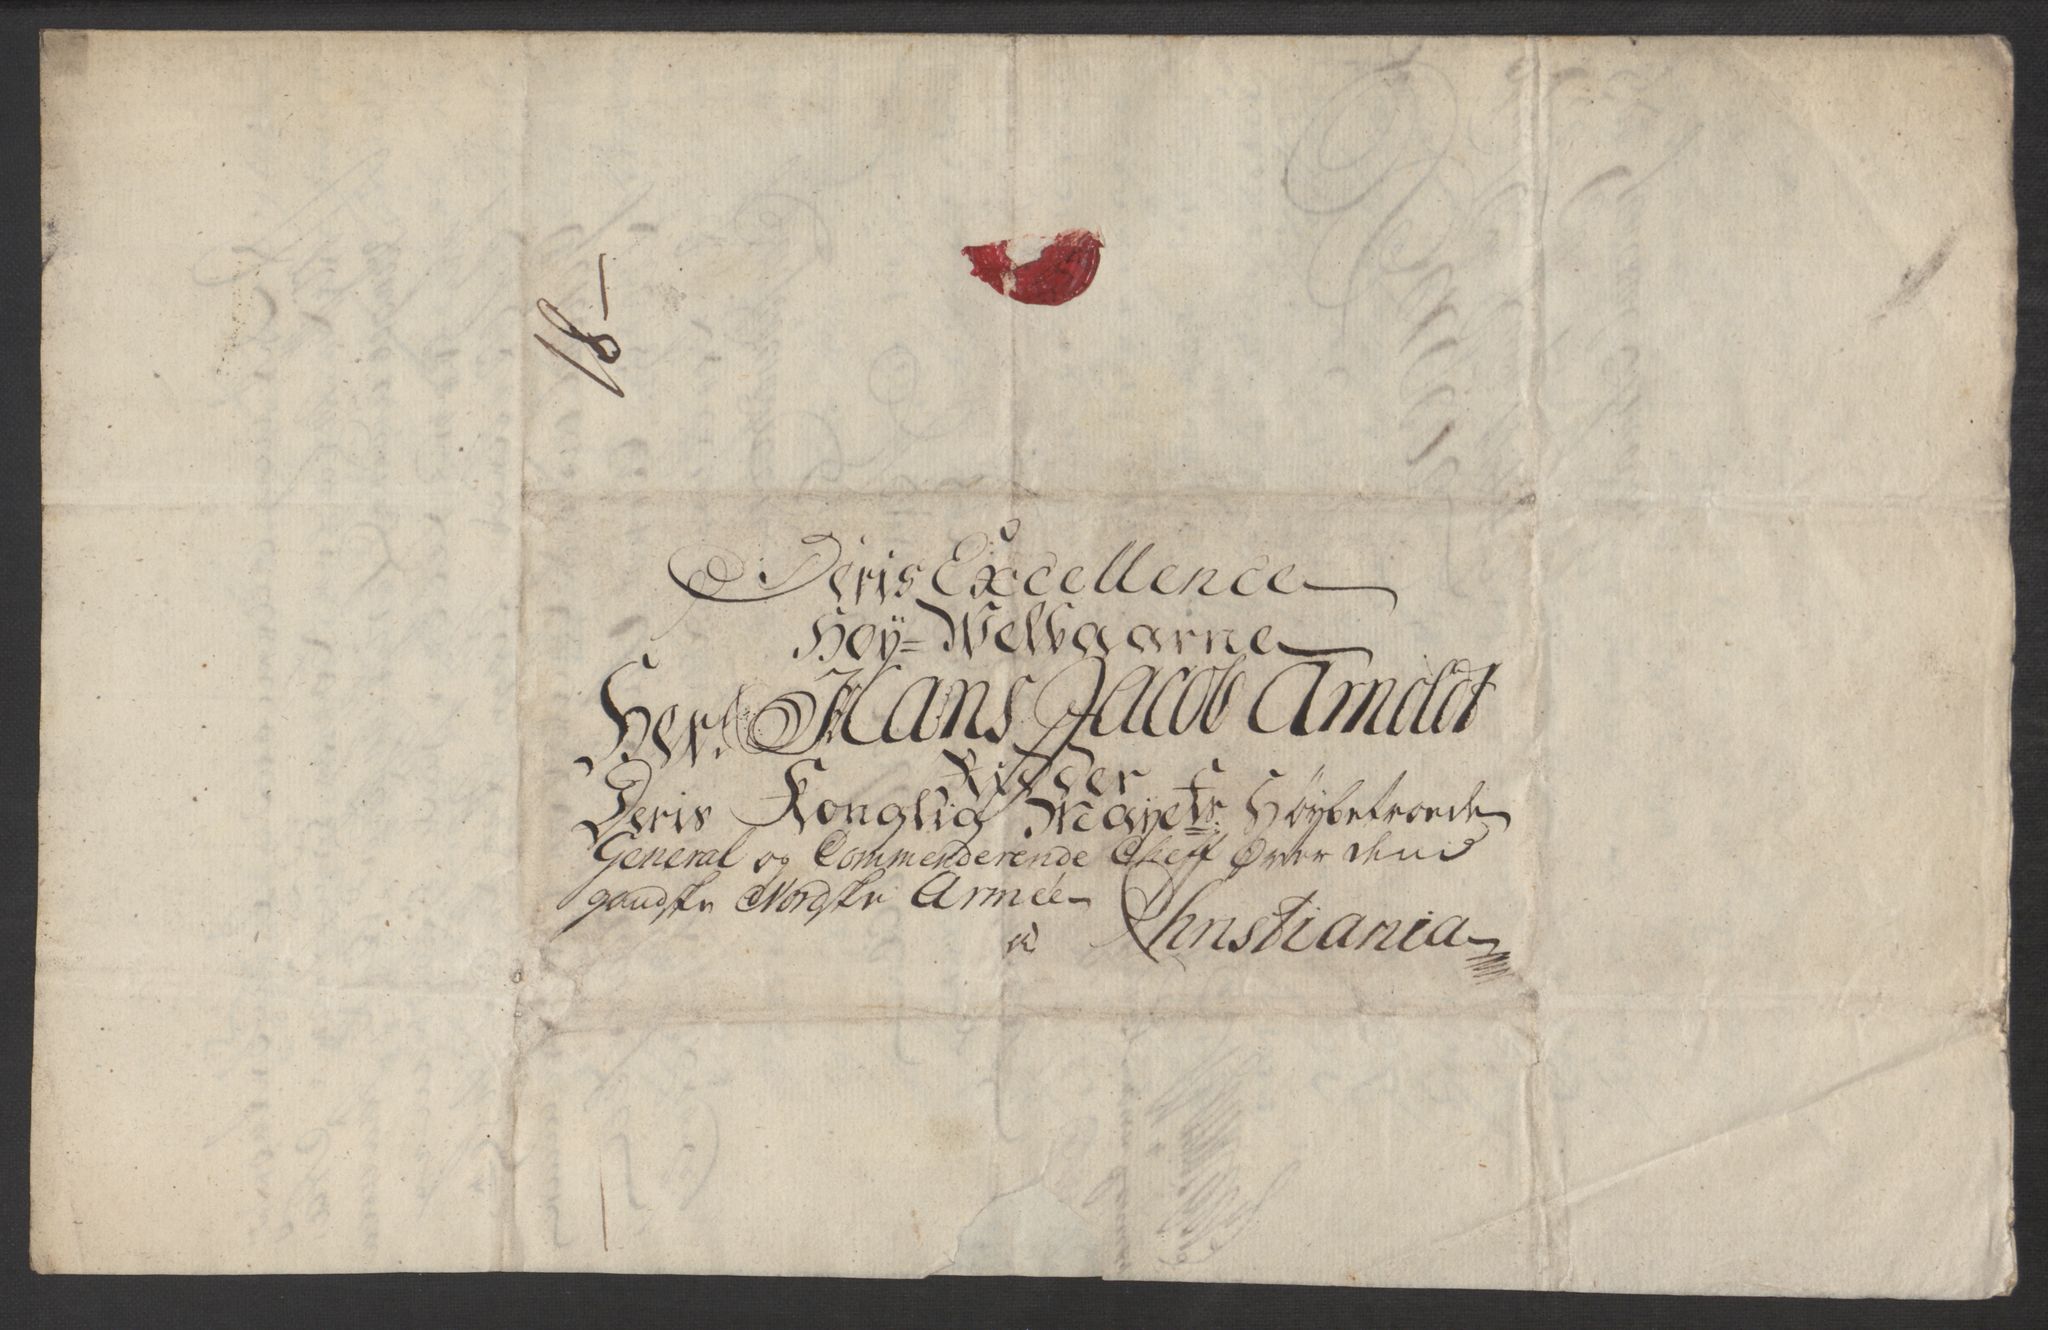 18-
Deris Excellence
Høÿ=Welbaarne
Herr. Hans Jacob Arnoldt
Ridder
Deris Konglig Mayets: Høybetroede
General og Commenderende Cheff Over den
gandske Nordske Armée
a Christiania